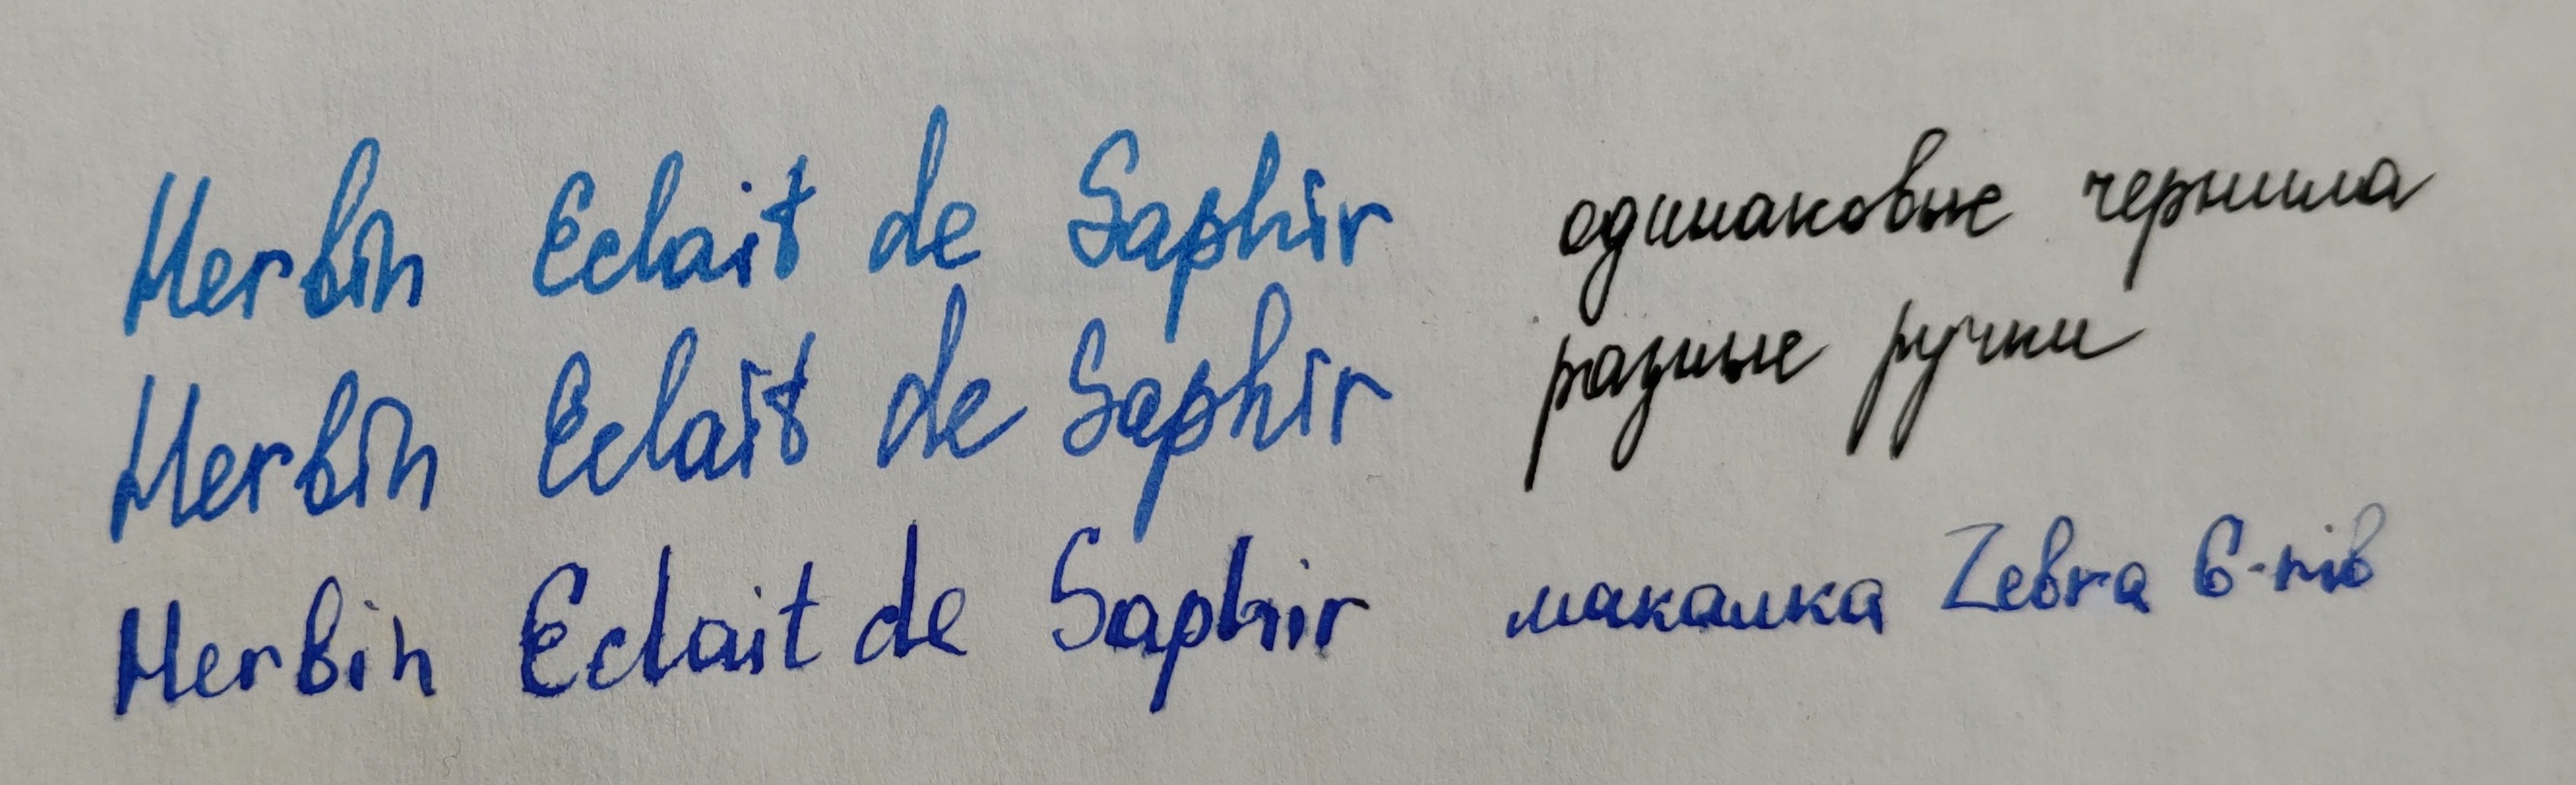 Herbin Eclait de Saphir одинаковые чернила
Herbin Eclait de Saphir разные ручки
Herbin Eclait de Saphir макалка Zebra G-nib